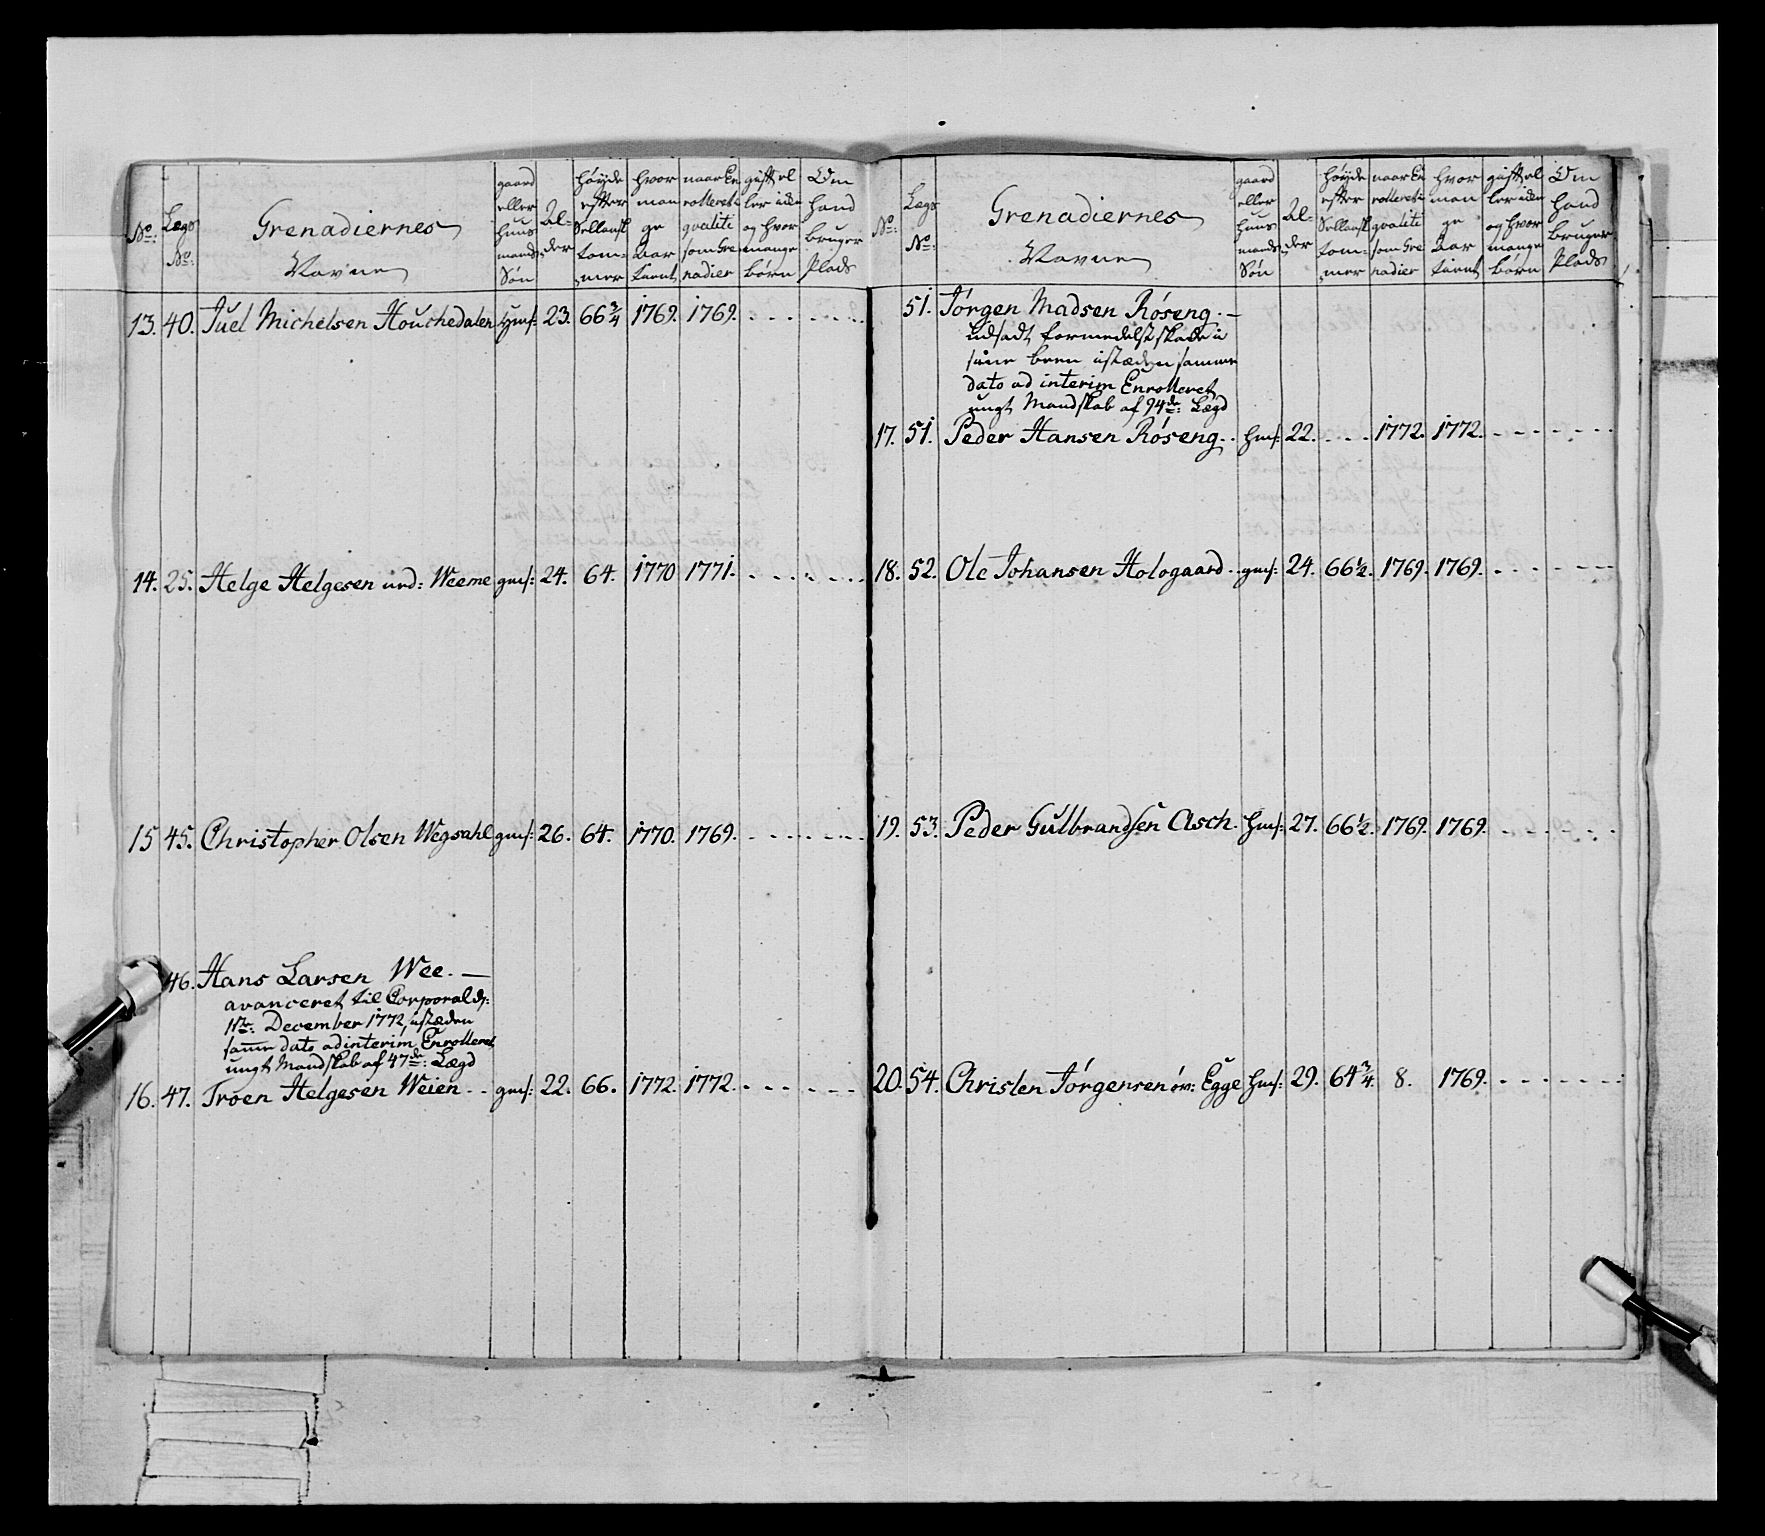 No:
Lægs No:
Grenadiernes Navne
gaard eller huus mands Søn
Al- der
høyde efter Sellandsk tom- mer
hvor man ge Aar tient
naar En rolleret i qvalité som Gre nadier
gift el ler ikke og hvor mange børn
Om hand bruger Plads
13. 40. Juel Michelsen Houchedalen hmf: 23. 66 3/4 1769. 1769.
14. 25. Helge Helgesen nrd: Weeme gmf: 24. 64. 1770 1771.
15 45. Christopher Olsen Wegsahl gmf: 26. 64. 1770. 1769.
46. Hans Larsen Wee. —
avanceret til Corporal d:
11te: December 1772, istæden
samme dato ad interim Enrolleret
ungt Mandskab af 47de: Lægd
16. 47. Troen Helgesen Weien gmf: 22. 66. 1772. 1772.
No:
Lægs No:
Grenadiernes Navne
gaard eller huus mands Søn
Al- der
høyde efter Sellandsk tom- mer
naar En rolleret i qvalité som Gre nadier
hvor man ge Aar tient
gift el ler iden og hvor mange børn
Om hand bruger Plads
51. Jørgen Madsen Røseng. —
Udsadt formedelst skade i
sine been istæden samme
dato ad interim Enrolleret
ungt Mandskab af 94de: Lægd
17. 51. Peder Hansen Røseng. hmf: 22. 1772. 1772.
18. 52. Ole Johansen Hologaard gmf: 24. 66 1/2. 1769. 1769.
19. 53. Peder Gulbrandsen Asch. hmf: 27. 66 1/2. 1769. 1769.
20. 54. Christen Jørgensen øv: Egge hmf: 29. 64 3/4. 8. 1769.